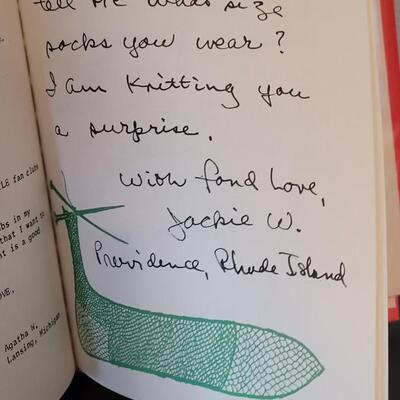 tell me what size
socks you wear?
I am knitting you
a surprise.
With fond love,
Jackie W.
Providence, Rhode Island
LE fan clubs
bs in my
that I want to
t is a good
OVE,
Agatha W.
Lansing, Michigan